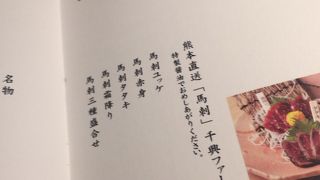 熊本直送「馬刺」千興ファー
特製醤油でおめしあがりください。
馬刺ユッケ
馬刺赤身
馬刺タタキ
馬刺霜降り
馬刺三種盛合せ
名物